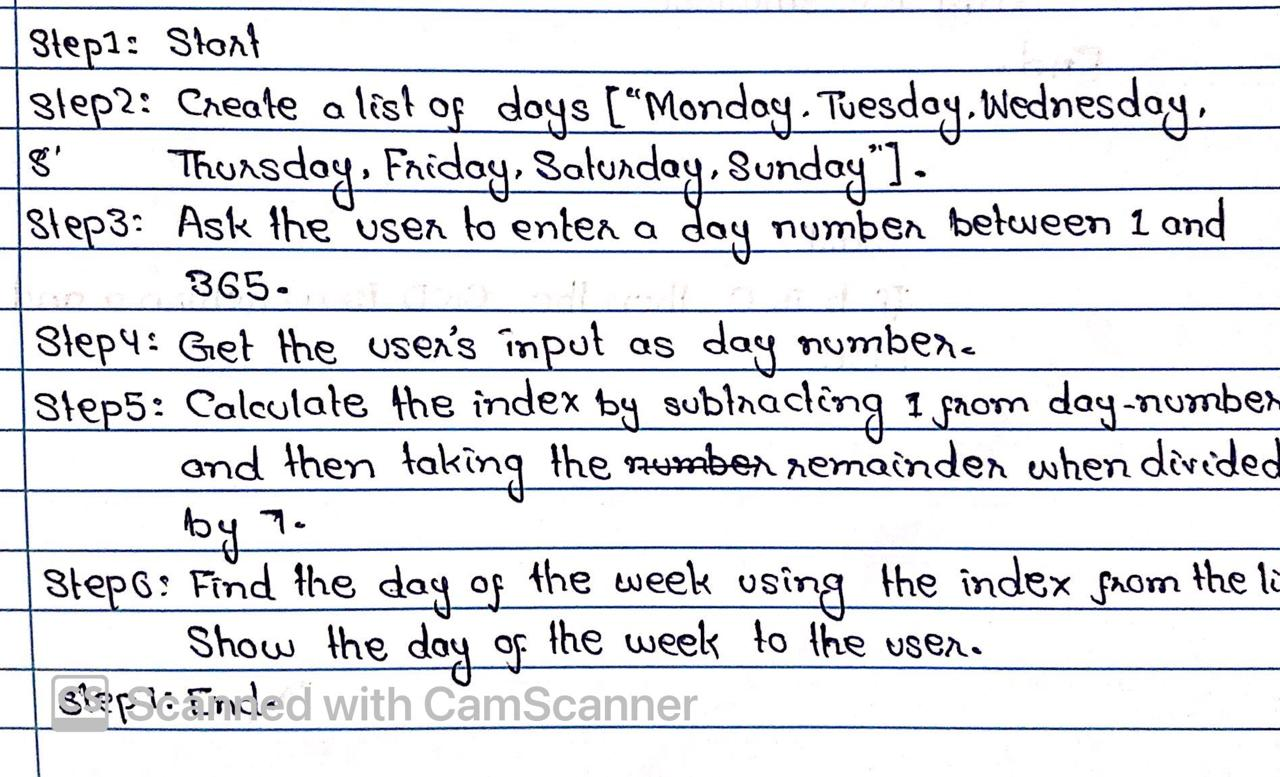 Step1: Start
Step2: Create a list of days ["Monday. Tuesday, Wednesday,
S' Thursday, Friday, Saturday, Sunday"].
Step3: Ask the user to enter a day number between 1 and
365.
Step4: Get the user's input as day number.
Step5: Calculate the index by subtracting 1 from day-number
and then taking the number remainder when divided
by 7.
Step6: Find the day of the week using the index from the li
Show the day of the week to the user.
End.
CS Scanned with CamScanner